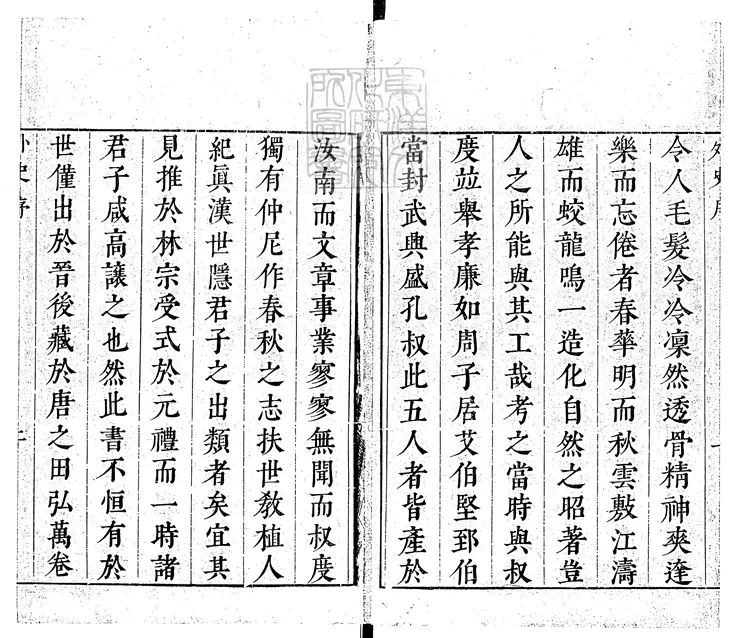 令人毛髮冷冷凜然透骨精神爽逹
樂而忘倦者春華明而秋雲敷江濤
雄而蛟龍鳴一造化自然之昭著豈
人之所能與其工哉考之當時與叔
度並舉孝廉如周子居艾伯堅郅伯
當封武興盛孔叔此五人者皆產於
汝南而文章事業寥寥無聞而叔度
獨有仲尼作春秋之志扶世敎植人
紀眞漢世隱君子之出類者矣宜其
見推於林宗受式於元禮而一時諸
君子咸高讓之也然此書不恒有於
世僅出於晉後藏於唐之田弘萬卷